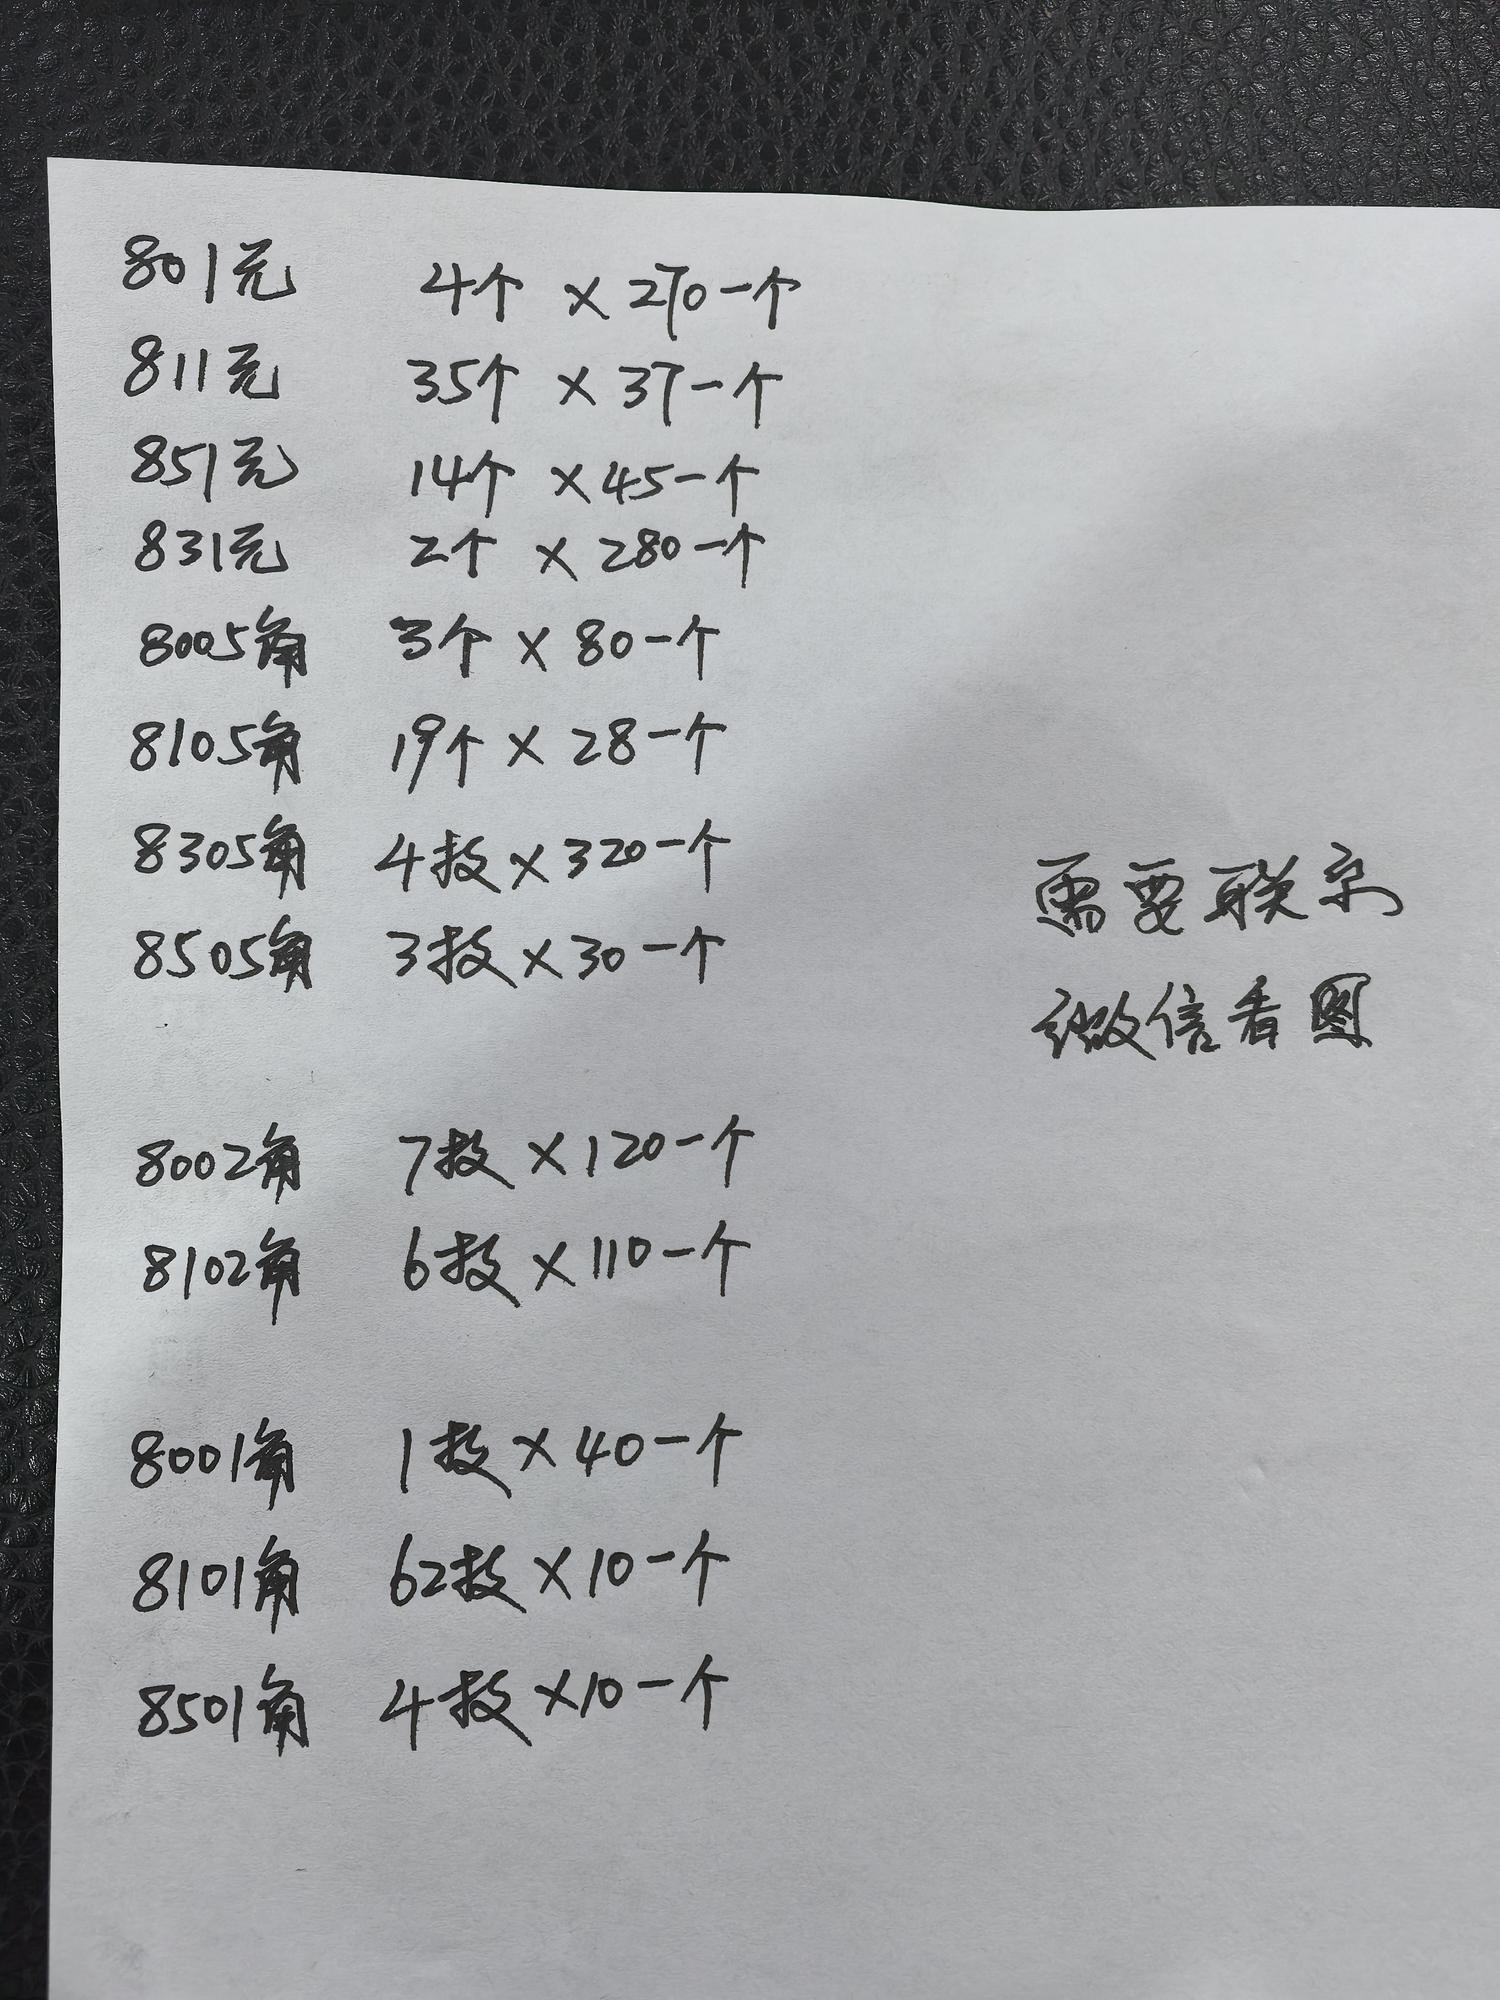 801元 4个 × 270一个
811元 35个 × 37一个
851元 14个 × 45一个
831元 2个 × 280一个
8005角 3个 × 80一个
8105角 19个 × 28一个
8305角 4技 × 320一个
8505角 3技 × 30一个
需要联系
微信看图
8002角 7技 × 120一个
8102角 6技 × 110一个
8001角 1技 × 40一个
8101角 62技 × 10一个
8501角 4技 × 10一个